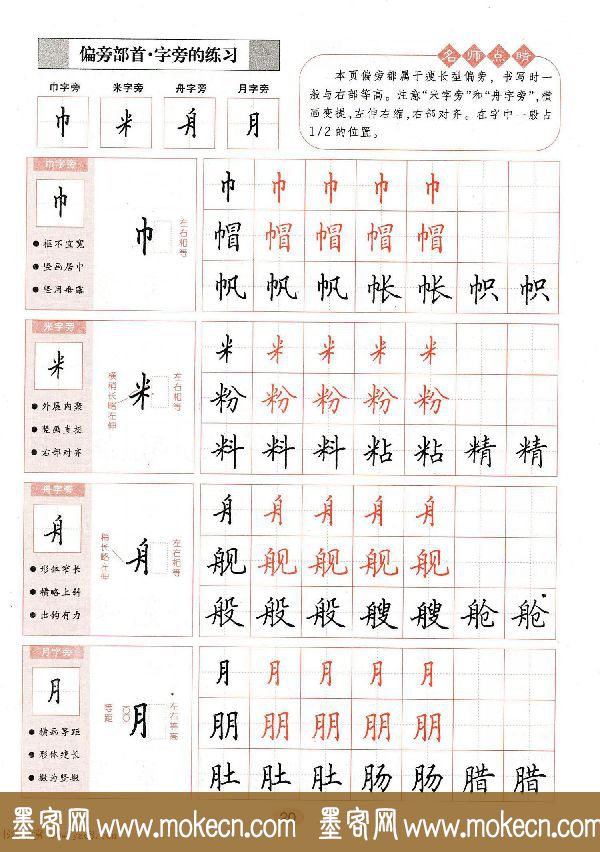 偏旁部首·字旁的练习
巾字旁 米字旁 舟字旁 月字旁
巾 米 舟 月
名师点睛
本页偏旁都属于瘦长型偏旁，书写时一
般与右部等高。注意“米字旁”和“舟字旁”，横
画变提，左伸右缩，右部对齐。在字中一般占
1/2的位置。
巾字旁
巾
框不宜宽
竖画居中
竖用垂露
巾
左右相等
巾 巾 巾 巾 巾
帽 帽 帽 帽 帽
帆 帆 帆 帐 帐 帜 帜
米字旁
米
外展内聚
竖画直挺
右部对齐
横稍长略左伸
米
左右相等
米 米 米 米 米
粉 粉 粉 粉 粉
料 料 料 粘 粘 精 精
舟字旁
舟
形体窄长
横略上斜
出钩有力
梢长略左伸
舟
左右相等
舟 舟 舟 舟 舟
舰 舰 舰 舰 舰
般 般 般 艘 艘 舱 舱
月字旁
月
横画等距
形体瘦长
撇为竖撇
等距
月
左右等高
月 月 月 月 月
朋 朋 朋 朋 朋
肚 肚 肚 肠 肠 腊 腊
20
墨客网 www.mokecn.com 墨客网 www.mokecn.com